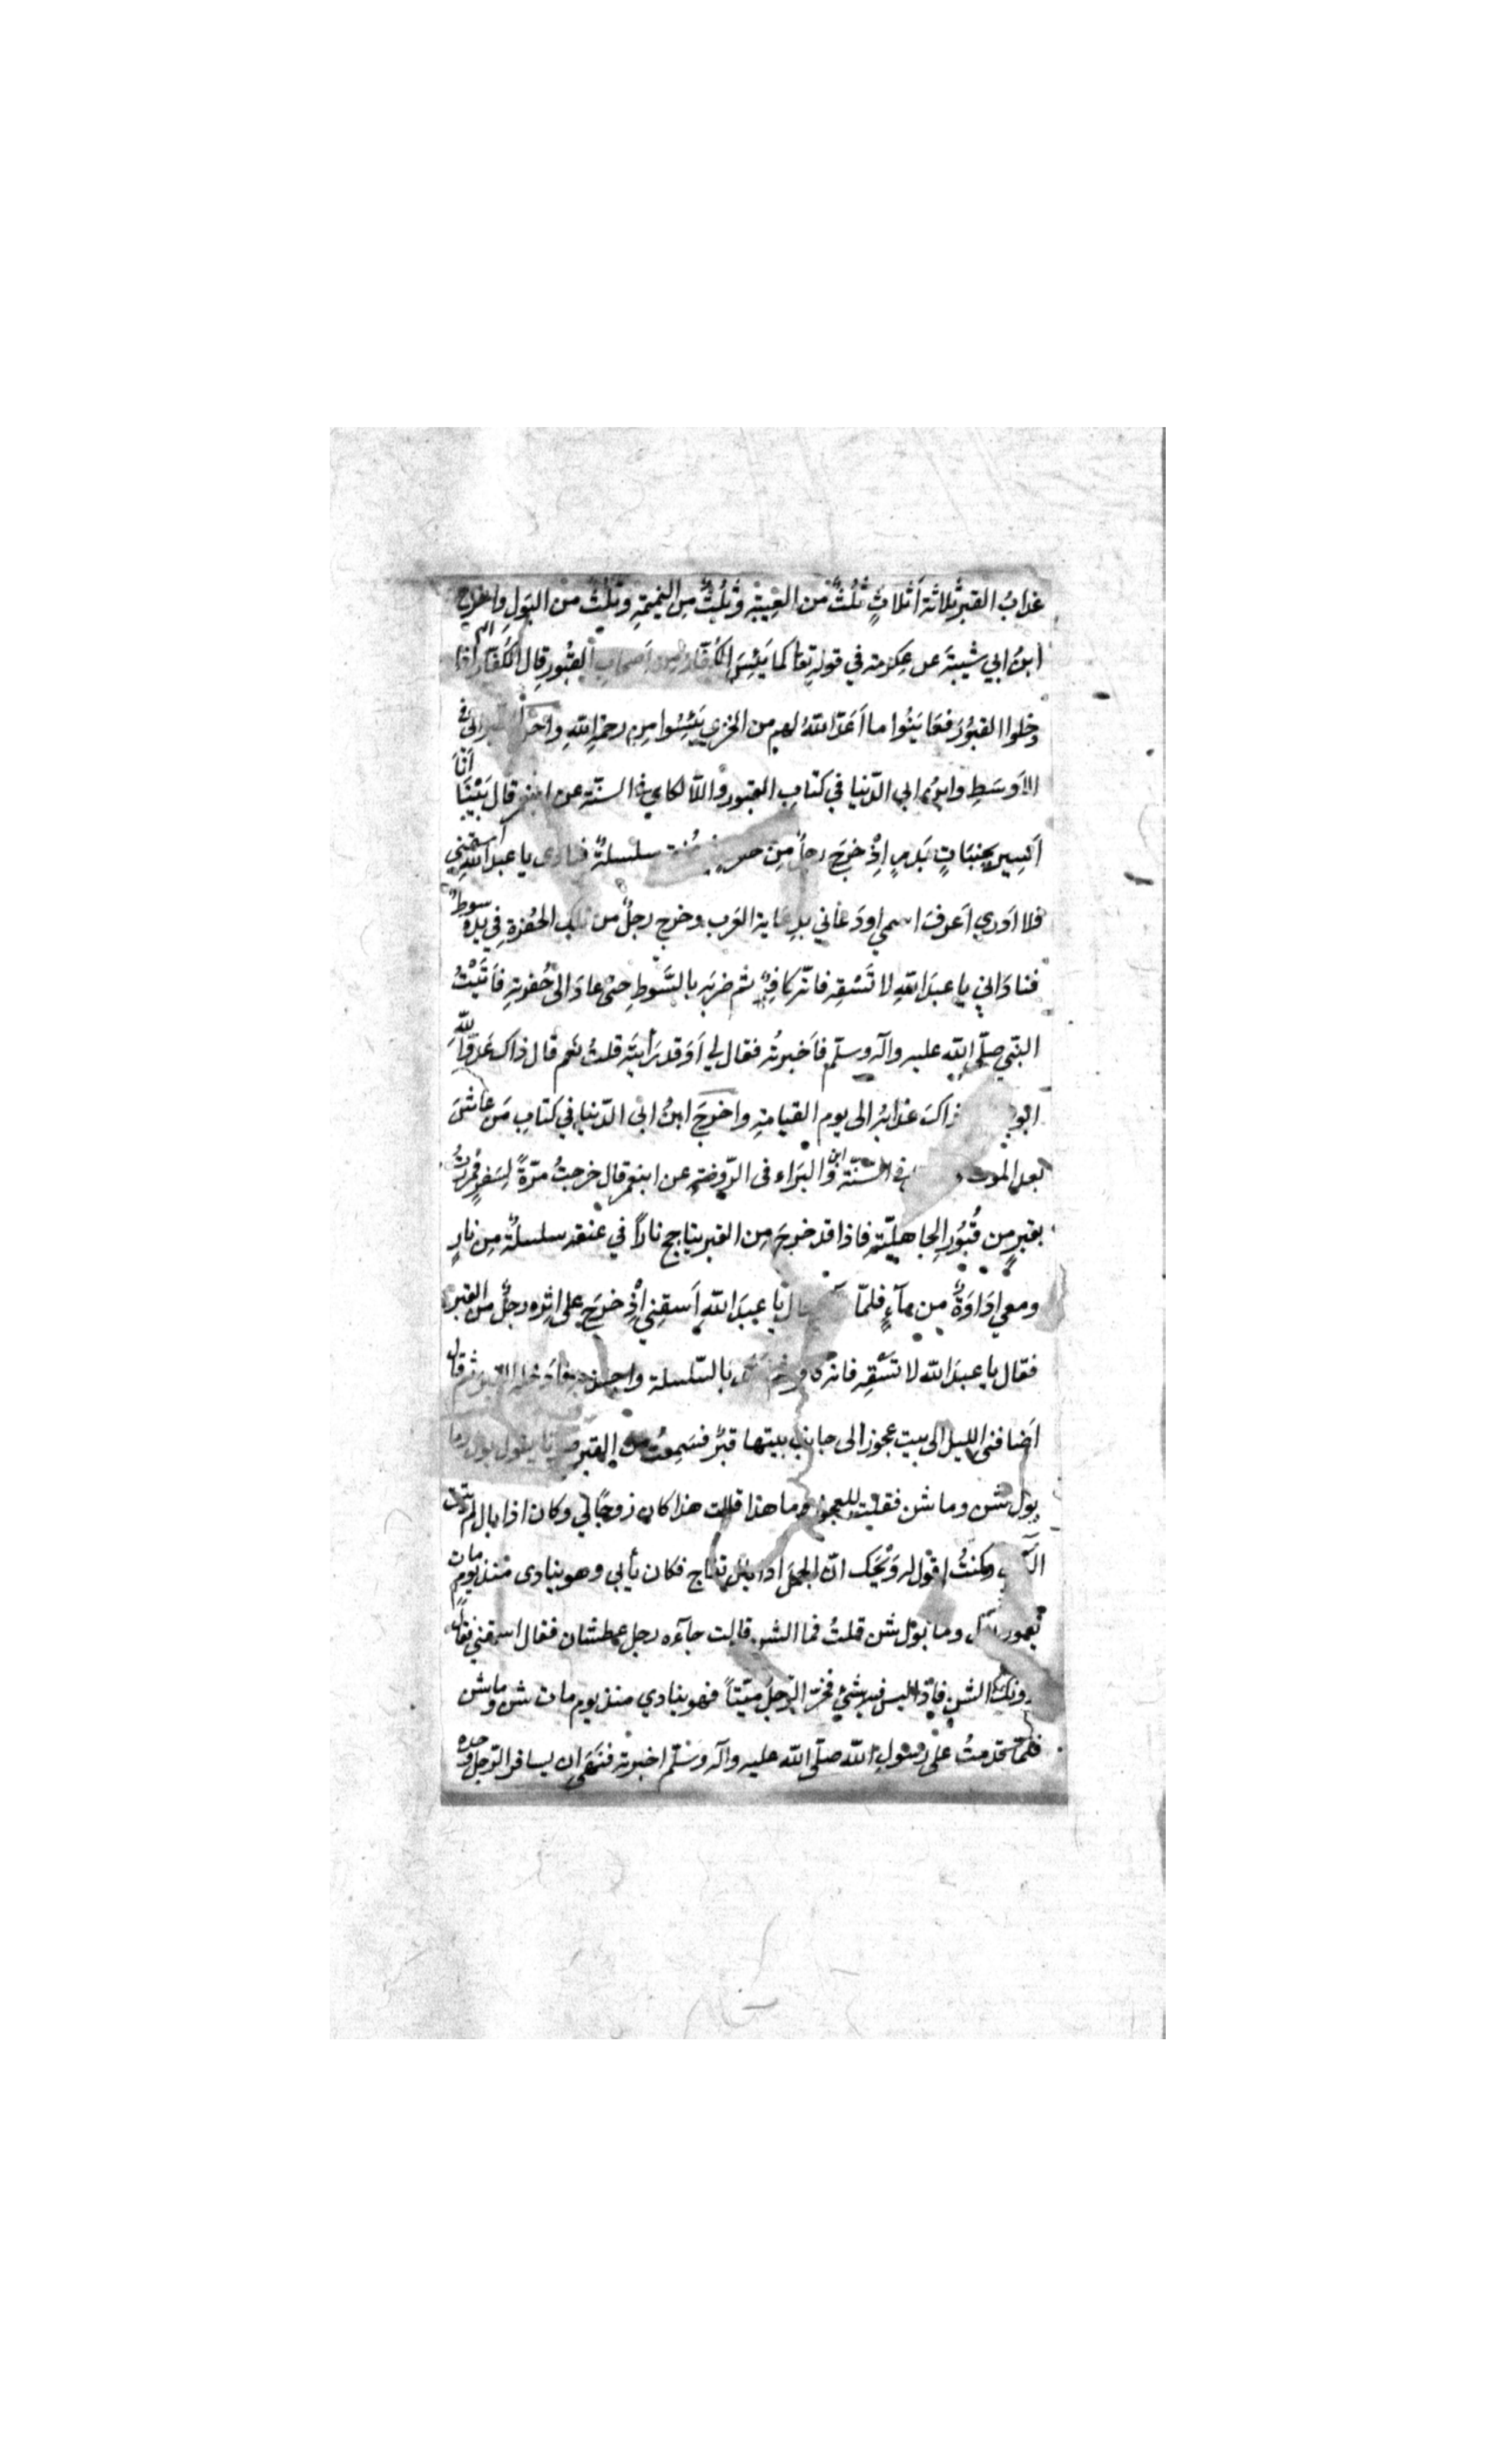 عذابُ القبر ثلاثة أثلاثٍ ثُلُثٌ من الغِيبَةِ وثُلُثٌ مِن النميمَةِ وثُلُثٌ من البَولِ واخرج
ابنُ ابي شيبة عن عِكرمة في قوله تعا كما يَئِسَ الكُفّارُ من اَصحابِ القُبُور قال الكُفّار اذا
دخلوا القبُورَ فعَايَنُوا ما اَعَدّ اللهُ لهم من الخزي يَئِسُوا مِن رحمةِ اللهِ واخرج الطبرانى فى
الاَوسَطِ وابن ابي الدّنيا في كتابِ القبور واللّالكاي في السنّة عن ابنعمر قال بَيْنَا أنَا
اَسِير بجنبَاتٍ بَدرٍ اِذْ خرَجَ رجلٌ مِن حفرةٍ في عنقه سلسلةٌ فنادى يا عبدَ اللهِ اسقِنِي
فلا ادري اَعرفَ اسمي اودَعَاني بدِعَاية العَرب وخرج رجلٌ من تلك الحُفرَةِ فِي يده سوط
فنادَاني يا عبدَ اللهِ لا تَسْقِه فانّه كافِرٌ ثم ضربَه بالسَّوطِ حتى عادَ الى حُفرتِه فاَتَيْتُ
النّبي صلّى الله عليه وآله وسلّم فاَخبرتُه فقال لي اَوَقد رَأيتَه قلتُ نعم قال ذاك عَدوّاللهِ
ابو ذاكَ عذابُه الى يوم القيامةِ واخرَجَ ابنُ ابى الدّنيا في كتابِ مَن عَاشَ
بعد الموت فى السّنّة وابن البَراء فى الرّوضة عن ابنعمر قال خرجتُ مرّةً لِسَفرٍ فمررتُ
بقبرٍ مِن قُبُور الجاهليّةِ فاذا قد خرجَ مِن القبر يتاجج ناراً في عنقه سلسلةٌ مِن نارٍ
ومعي اِدَاوَةٌ من مآءٍ فلمّا قال يا عبدَ اللهِ اَسقِني اِذْ خرجَ على اثره رجلٌ من القبر
فقال يا عبدَ اللّه لا تسْقِه فانه كافر بالسّلسلة واجتذبه فادخله القبر ثم قال
اَضافنى الليل الى بيت عجوز الى جانب بيتها قبرٌ فسَمِعتُ من القبر صوتا يقول بول وما
بول شن وما شن فقلت للعجوز وما هذا قالت هذا كان زوجاً لي وكان اذا بال لم يتّق
البول وكنتُ اقول له وَيْحَك انّ الجمَلَ اذا بال تفاج فكان يأبى وهو ينادى منذ يوم مات
بول وما بول شن قلتُ فما الشن قالت جآءه رجل عطشان فقال اسقني فقال
دونك الشن فاذا ليس فيه شيئ فخرّ الرّجلُ ميّتاً فهو ينادي منذ يوم مات شن وما شن
فلمّا قدمتُ على رسُولِ اللّه صلّى اللّه عليه وآله وسَلّم اخبرته فنَهَى ان يسافر الرّجل وحده